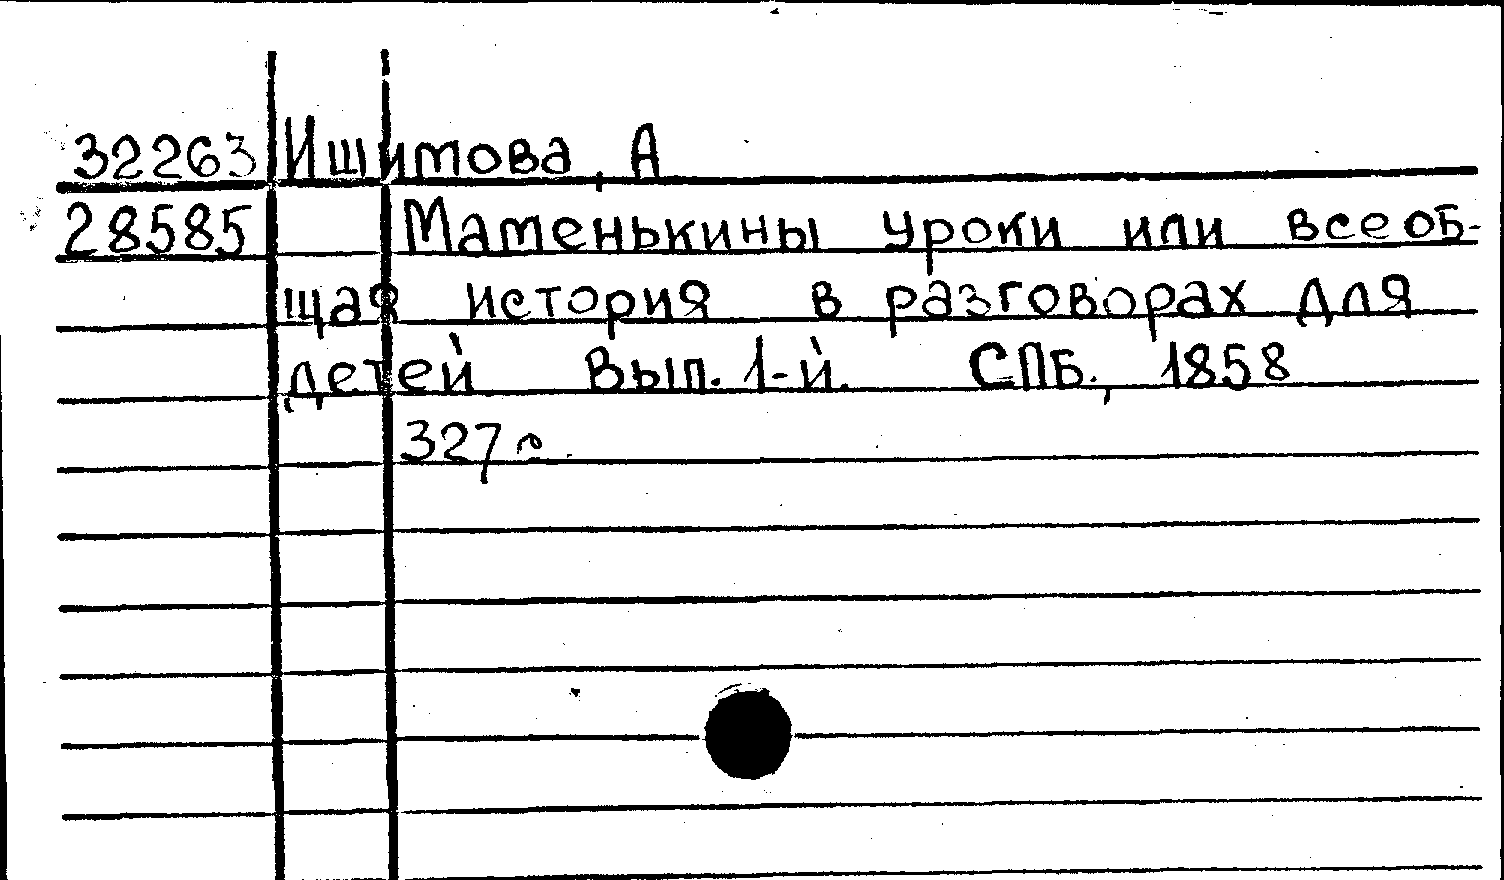 32263 Ишимова, А
28585 Маменькины уроки или всеоб-
щая история в разговорах для
детей Вып. 1-й. СПБ., 1858
327 с.